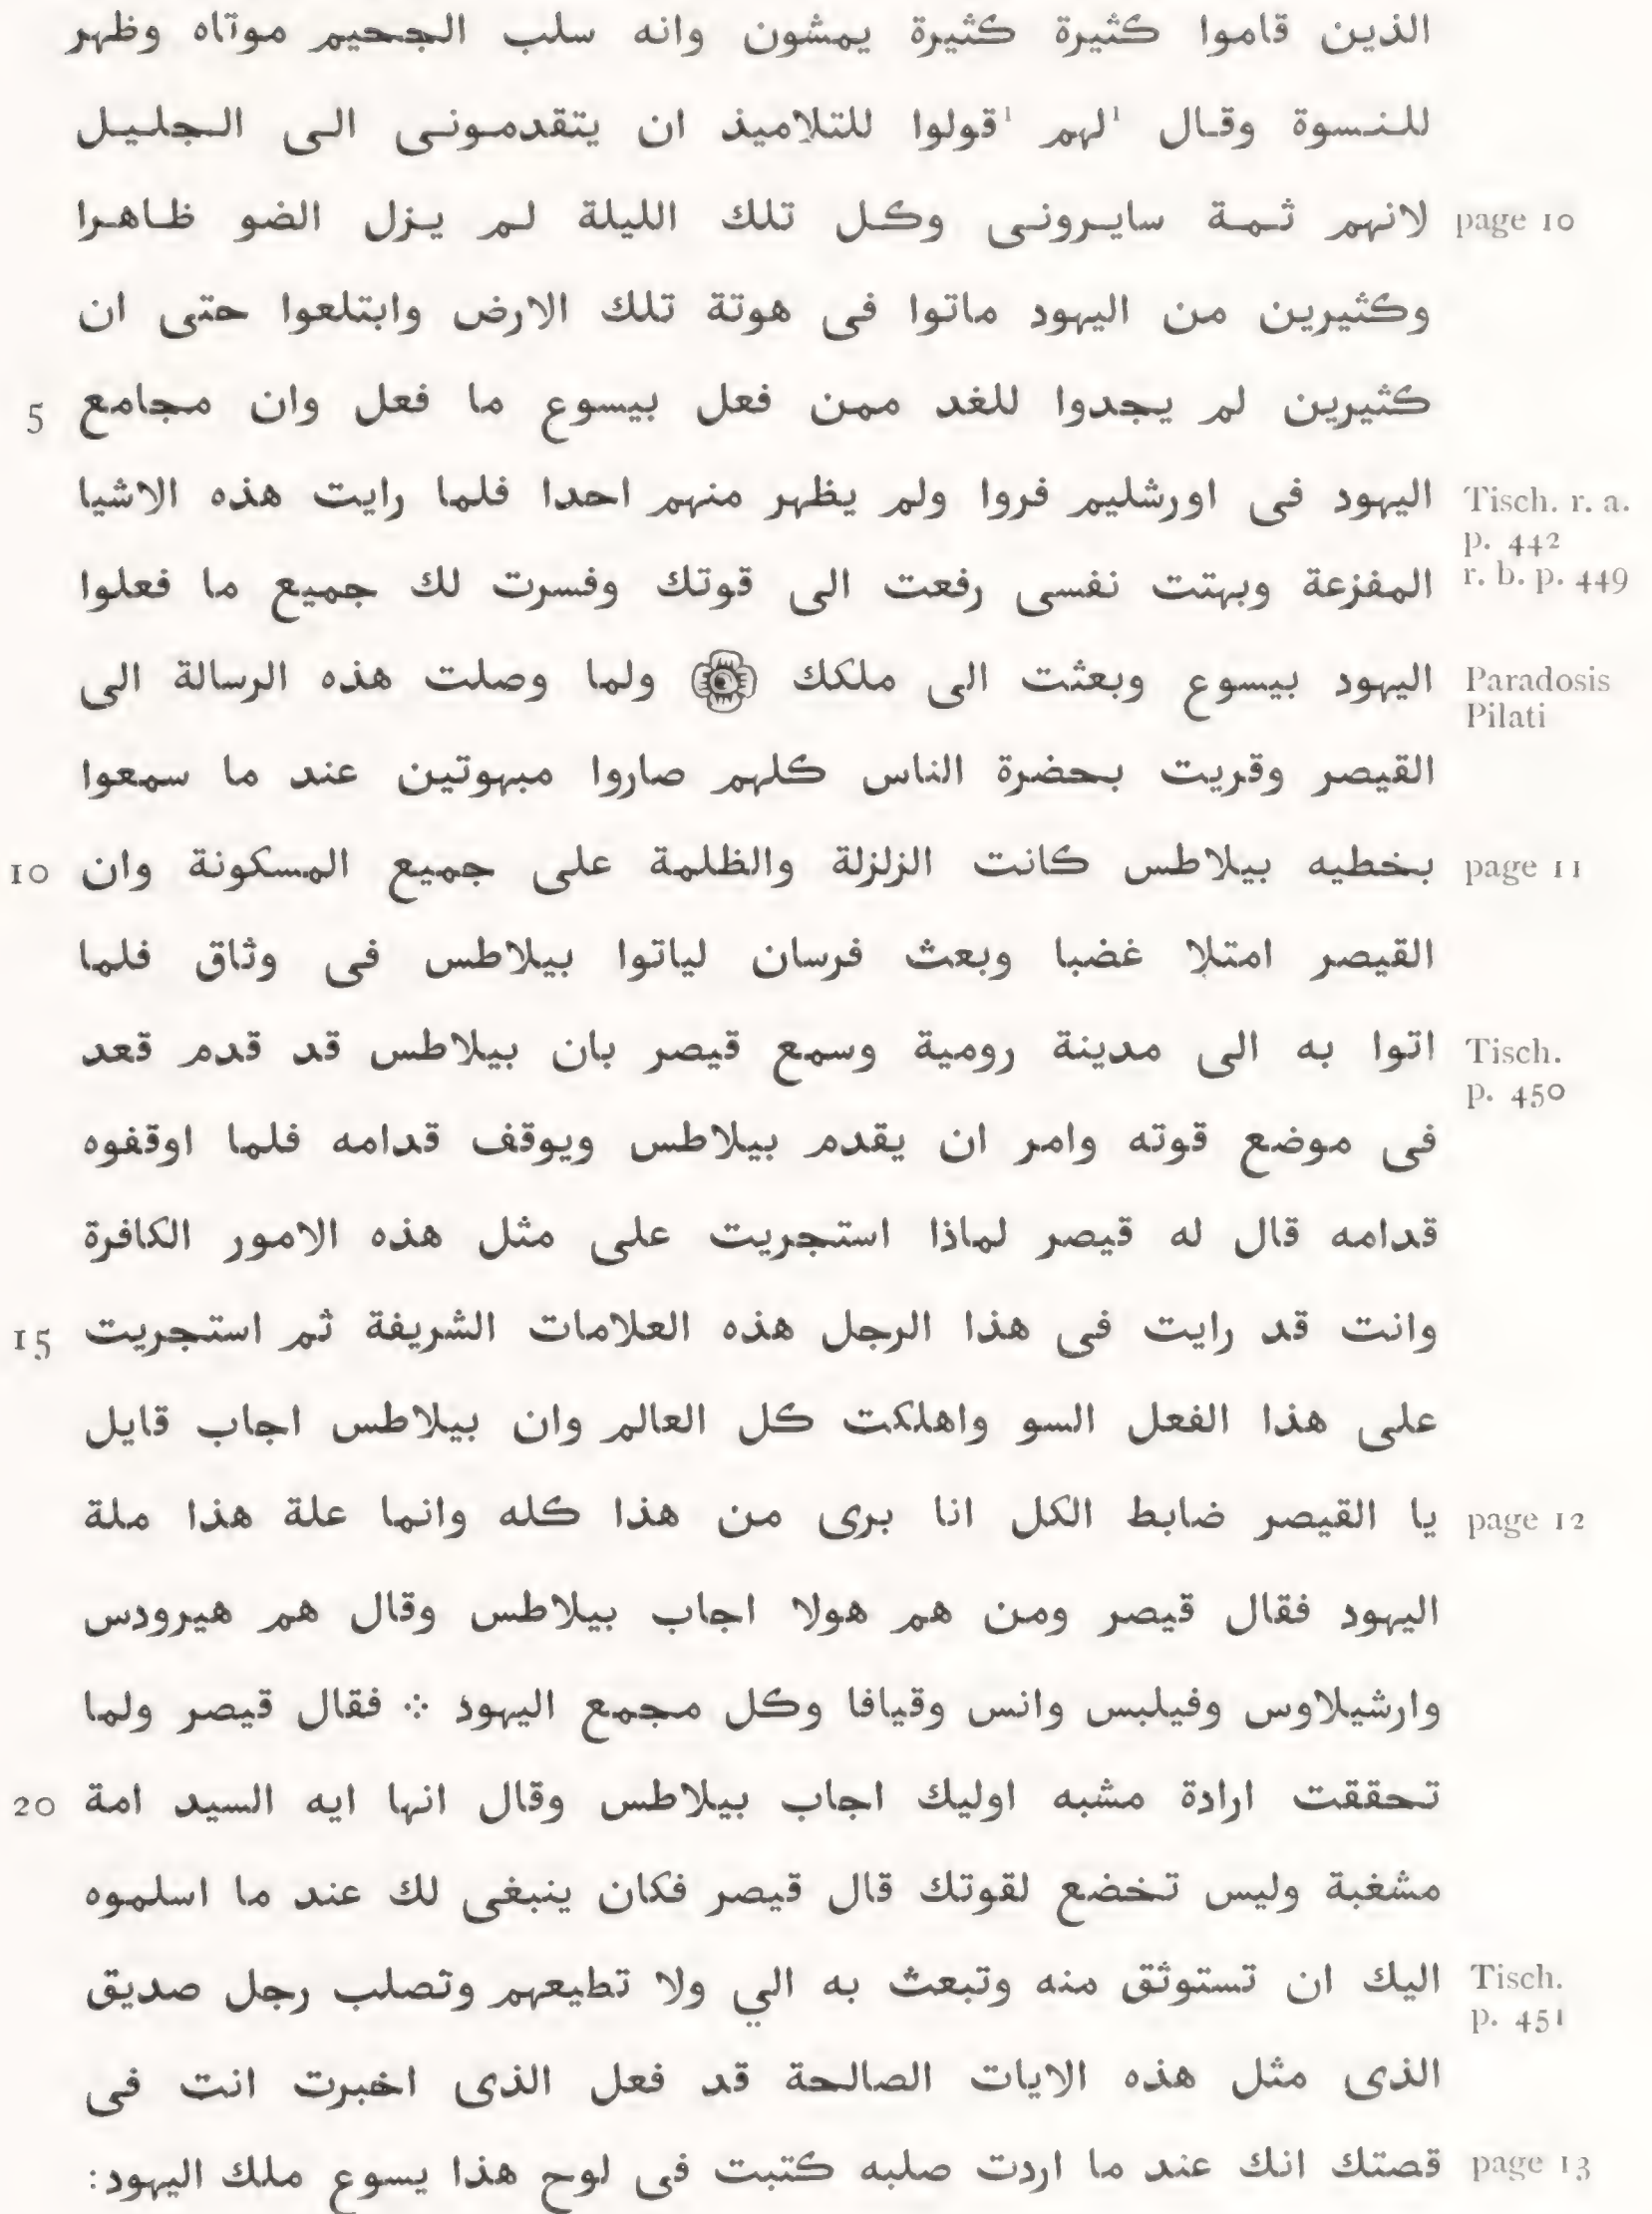 الذين قاموا كثيرة كثيرة يمشون وانه سلب الجحيم موتاه وظهر
للنسوة وقال ¹لهم ¹قولوا للتلاميذ ان يتقدمونى الى الجليل
لانهم ثمة سايرونى وكل تلك الليلة لم يزل الضو ظاهرا page 10
وكثيرين من اليهود ماتوا فى هوتة تلك الارض وابتلعوا حتى ان
كثيرين لم يجدوا للغد ممن فعل بيسوع ما فعل وان مجامع 5
اليهود فى اورشليم فروا ولم يظهر منهم احدا فلما رايت هذه الاشيا Tisch. r. a. p. 442
المفزعة وبهتت نفسى رفعت الى قوتك وفسرت لك جميع ما فعلوا r. b. p. 449
اليهود بيسوع وبعثت الى ملكك ولما وصلت هذه الرسالة الى Paradosis Pilati
القيصر وقريت بحضرة الناس كلهم صاروا مبهوتين عند ما سمعوا
بخطيه بيلاطس كانت الزلزلة والظلمة على جميع المسكونة وان 10 page 11
القيصر امتلا غضبا وبعث فرسان لياتوا بيلاطس فى وثاق فلما
اتوا به الى مدينة رومية وسمع قيصر بان بيلاطس قد قدم قعد Tisch. p. 450
فى موضع قوته وامر ان يقدم بيلاطس ويوقف قدامه فلما اوقفوه
قدامه قال له قيصر لماذا استجريت على مثل هذه الامور الكافرة
وانت قد رايت فى هذا الرجل هذه العلامات الشريفة ثم استجريت 15
على هذا الفعل السو واهلكت كل العالم وان بيلاطس اجاب قايل
يا القيصر ضابط الكل انا برى من هذا كله وانما علة هذا ملة page 12
اليهود فقال قيصر ومن هم هولا اجاب بيلاطس وقال هم هيرودس
وارشيلاوس وفيلبس وانس وقيافا وكل مجمع اليهود ⁘ فقال قيصر ولما
تحققت ارادة مشبه اوليك اجاب بيلاطس وقال انها ايه السيد امة 20
مشغبة وليس تخضع لقوتك قال قيصر فكان ينبغى لك عند ما اسلموه
اليك ان تستوثق منه وتبعث به الي ولا تطيعهم وتصلب رجل صديق Tisch. p. 451
الذى مثل هذه الايات الصالحة قد فعل الذى اخبرت انت فى
قصتك انك عند ما اردت صلبه كتبت فى لوح هذا يسوع ملك اليهود: page 13